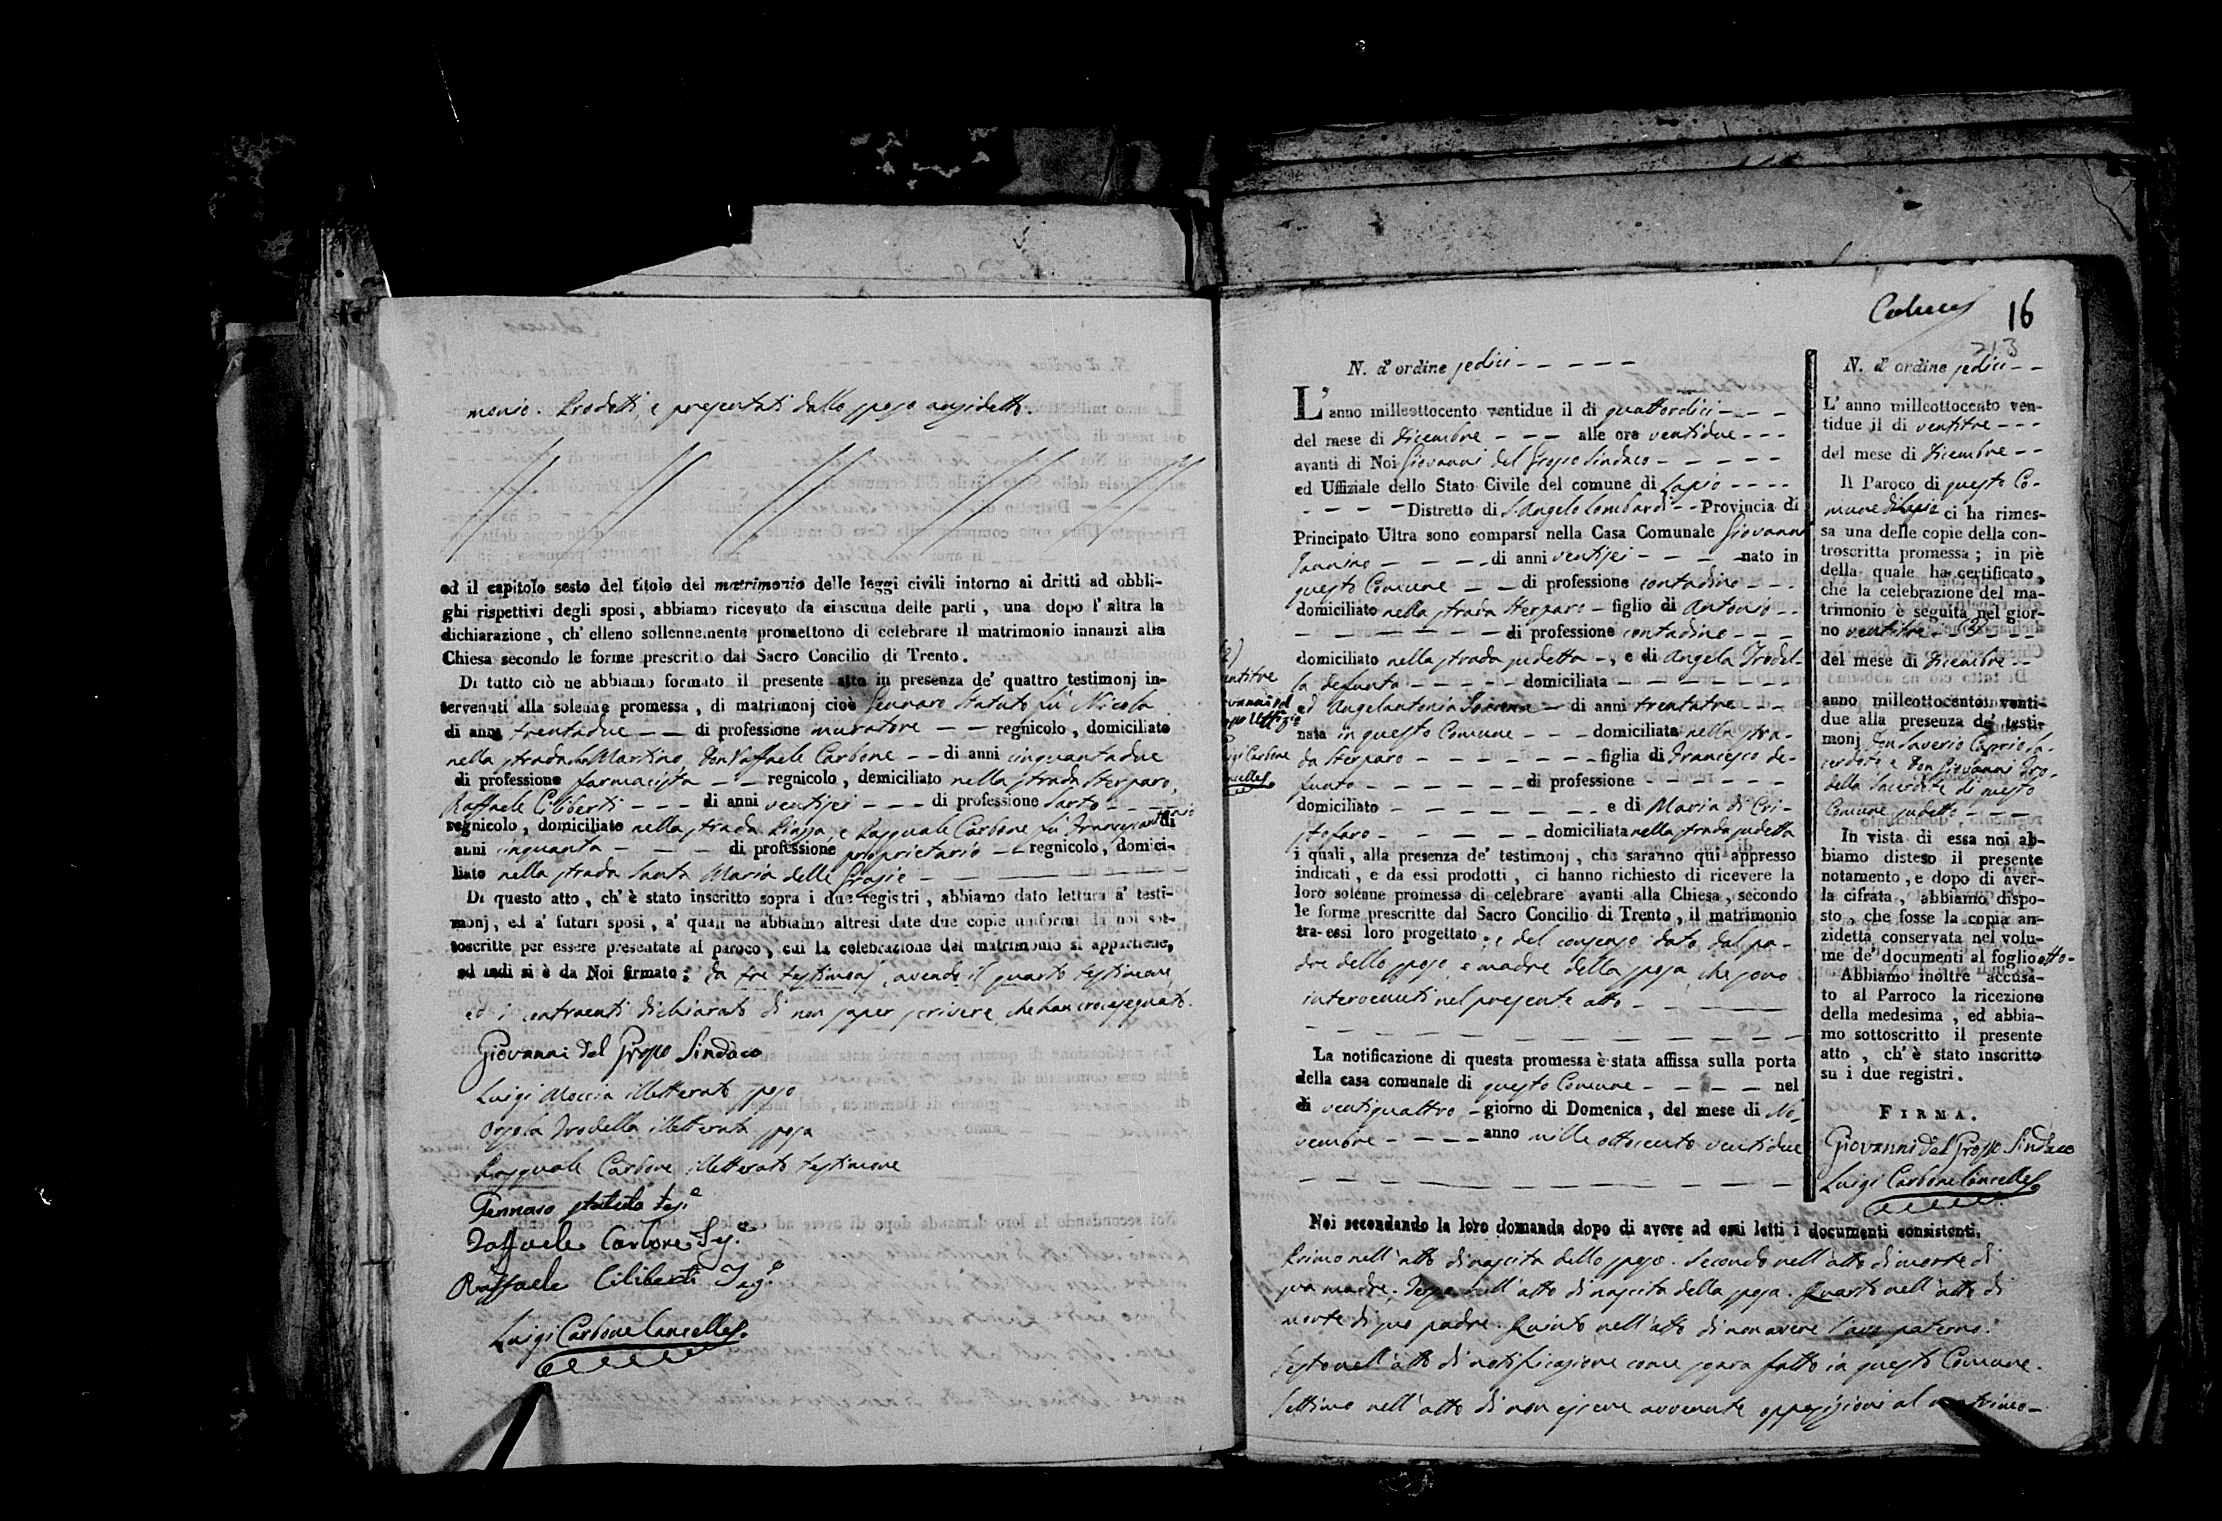 monio. Prodotti e presentati dallo sposo anzidetto.
ed il capitolo sesto del titolo del matrimonio delle leggi civili intorno ai dritti ad obbli-
ghi rispettivi degli sposi, abbiamo ricevuto da ciascuna delle parti, una dopo l' altra la
dichiarazione, ch' elleno sollennemente promettono di celebrare il matrimonio innanzi alla
Chiesa secondo le forme prescritto dal Sacro Concilio di Trento.
Di tutto ciò ne abbiamo formato il presente atto in presenza de' quattro testimonj in-
tervenuti alla solenne promessa, di matrimonj cioè Gennaro Statuto fù Nicola
di anni trentadue — — di professione muratore — — regnicolo, domiciliato
nella strada San Martino, Don Raffaele Carbone — — di anni cinquantadue
di professione farmacista — — regnicolo, domiciliato nella strada Sterparo,
Raffaele Ciliberti - - - di anni ventisei - - - di professione Sarto - - -
regnicolo, domiciliato nella strada Piazza e Pasquale Carbone fù Francescantonio di
anni cinquanta - — — di professione proprietario — — regnicolo, domici-
liato nella strada Santa Maria delle Grazie —
Di questo atto, ch' è stato inscritto sopra i due registri, abbiamo dato lettura a' testi-
monj, ed a' futuri sposi, a' quali ne abbiamo altresì date due copie uniformi da noi sot-
toscritte per essere presentate al paroco, cui la celebrazione del matrimonio si appartiene,
ed indi si è da Noi firmato; da tre testimonj, avendo il quarto testimone
ed i contraenti dichiarato di non saper scrivere, che han crocesegnato.
Giovanni Del Grosso Sindaco
Luigi Moccia illetterato sposo
Orsola Trodella illetterata sposa
Pasquale Carbone illetterato testimone
Gennaro statuto tes.e
Raffaele Carbone Tes.e
Raffaele Ciliberti Tes.e
Luigi Carbone Cancell.e
16
213
N. d' ordine sedici - - - - -
L' anno milleottocento ventidue il di quattordici - - -
del mese di Dicembre - - - alle ore ventidue - - -
avanti di Noi Giovanni del Grosso Sindaco - - - - -
ed Uffiziale dello Stato Civile del comune di Lapio - - - -
- - - - Distretto di S. Angelo Lombardi - - Provincia di
Principato Ultra sono comparsi nella Casa Comunale Giovanni
Iannino - - - - di anni ventisei - - - nato in
questo Comune — — di professione contadino - - -
domiciliato nella strada Sterparo — figlio di Antonio - -
- - - - - - di professione contadino - - -
domiciliato nella strada sudetta -, e di Angela Trodel-
la defunta - - - - - domiciliata - - - - -
ed Angelantonia — di anni trentatre - - -
nata in questo Comune - - - domiciliata nella stra-
da Sterparo - - - - - - - figlia di Francesco de-
funto - - - - - - di professione - - - - -
domiciliato - - - - - - e di Maria di Cri-
stofaro - - - - - - domiciliata nella strada sudetta
i quali, alla presenza de' testimonj, che saranno qui appresso
indicati, e da essi prodotti, ci hanno richiesto di ricevere la
loro solenne promessa di celebrare avanti alla Chiesa, secondo
le forme prescritte dal Sacro Concilio di Trento, il matrimonio
tra essi loro progettato; e del consenso dato dal pa-
dre dello sposo, e madre della sposa, che sono
intervenuti nel presente atto - - —
La notificazione di questa promessa è stata affissa sulla porta
della casa comunale di questo Comune - - - - nel
di ventiquattro - giorno di Domenica, del mese di No-
vembre - - - - anno mille ottocento ventidue
Noi secondando la loro domanda dopo di avere ad essi letti i documenti consistenti.
Primo nell' atto di nascita dello sposo. Secondo nell' atto di morte di
sua madre. Terzo dell' atto di nascita della sposa. Quarto nell' atto di
morte di suo padre. Quinto nell' atto di non avere l'avo paterno.
Sesto nell' atto di notificazione come sopra fatto in questo Comune.
Settimo nell' atto di non essere avvenute opposizioni al matrimo-
ventitre
Giovanni del
Grosso Uffiz.e
Luigi Carbone
Cancell.e
N. d' ordine sedici - -
L' anno milleottocento ven-
tidue il di ventitre - - -
del mese di Dicembre - -
Il Paroco di questo Co-
mune di Lapio ci ha rimes-
sa una delle copie della con-
troscritta promessa; in piè
della quale ha certificato,
che la celebrazione del ma-
trimonio è seguita nel gior-
no ventitre
del mese di Dicembre - -
anno milleottocento venti-
due alla presenza de' testi-
monj Don Saverio Caprio Sa-
cerdote e Don Giovanni Tro-
della Sacerdote di questo
Comune sudetto - - -
In vista di essa noi ab-
biamo disteso il presente
notamento, e dopo di aver-
la cifrata, abbiamo dispo-
sto, che fosse la copia an-
zidetta conservata nel volu-
me de' documenti al foglio otto-
Abbiamo inoltre accusa-
to al Parroco la ricezione
della medesima, ed abbia-
mo sottoscritto il presente
atto, ch' è stato inscritto
su i due registri.
FIRMA.
Giovanni Del Grosso Sindaco
Luigi Carbone Cancell.e